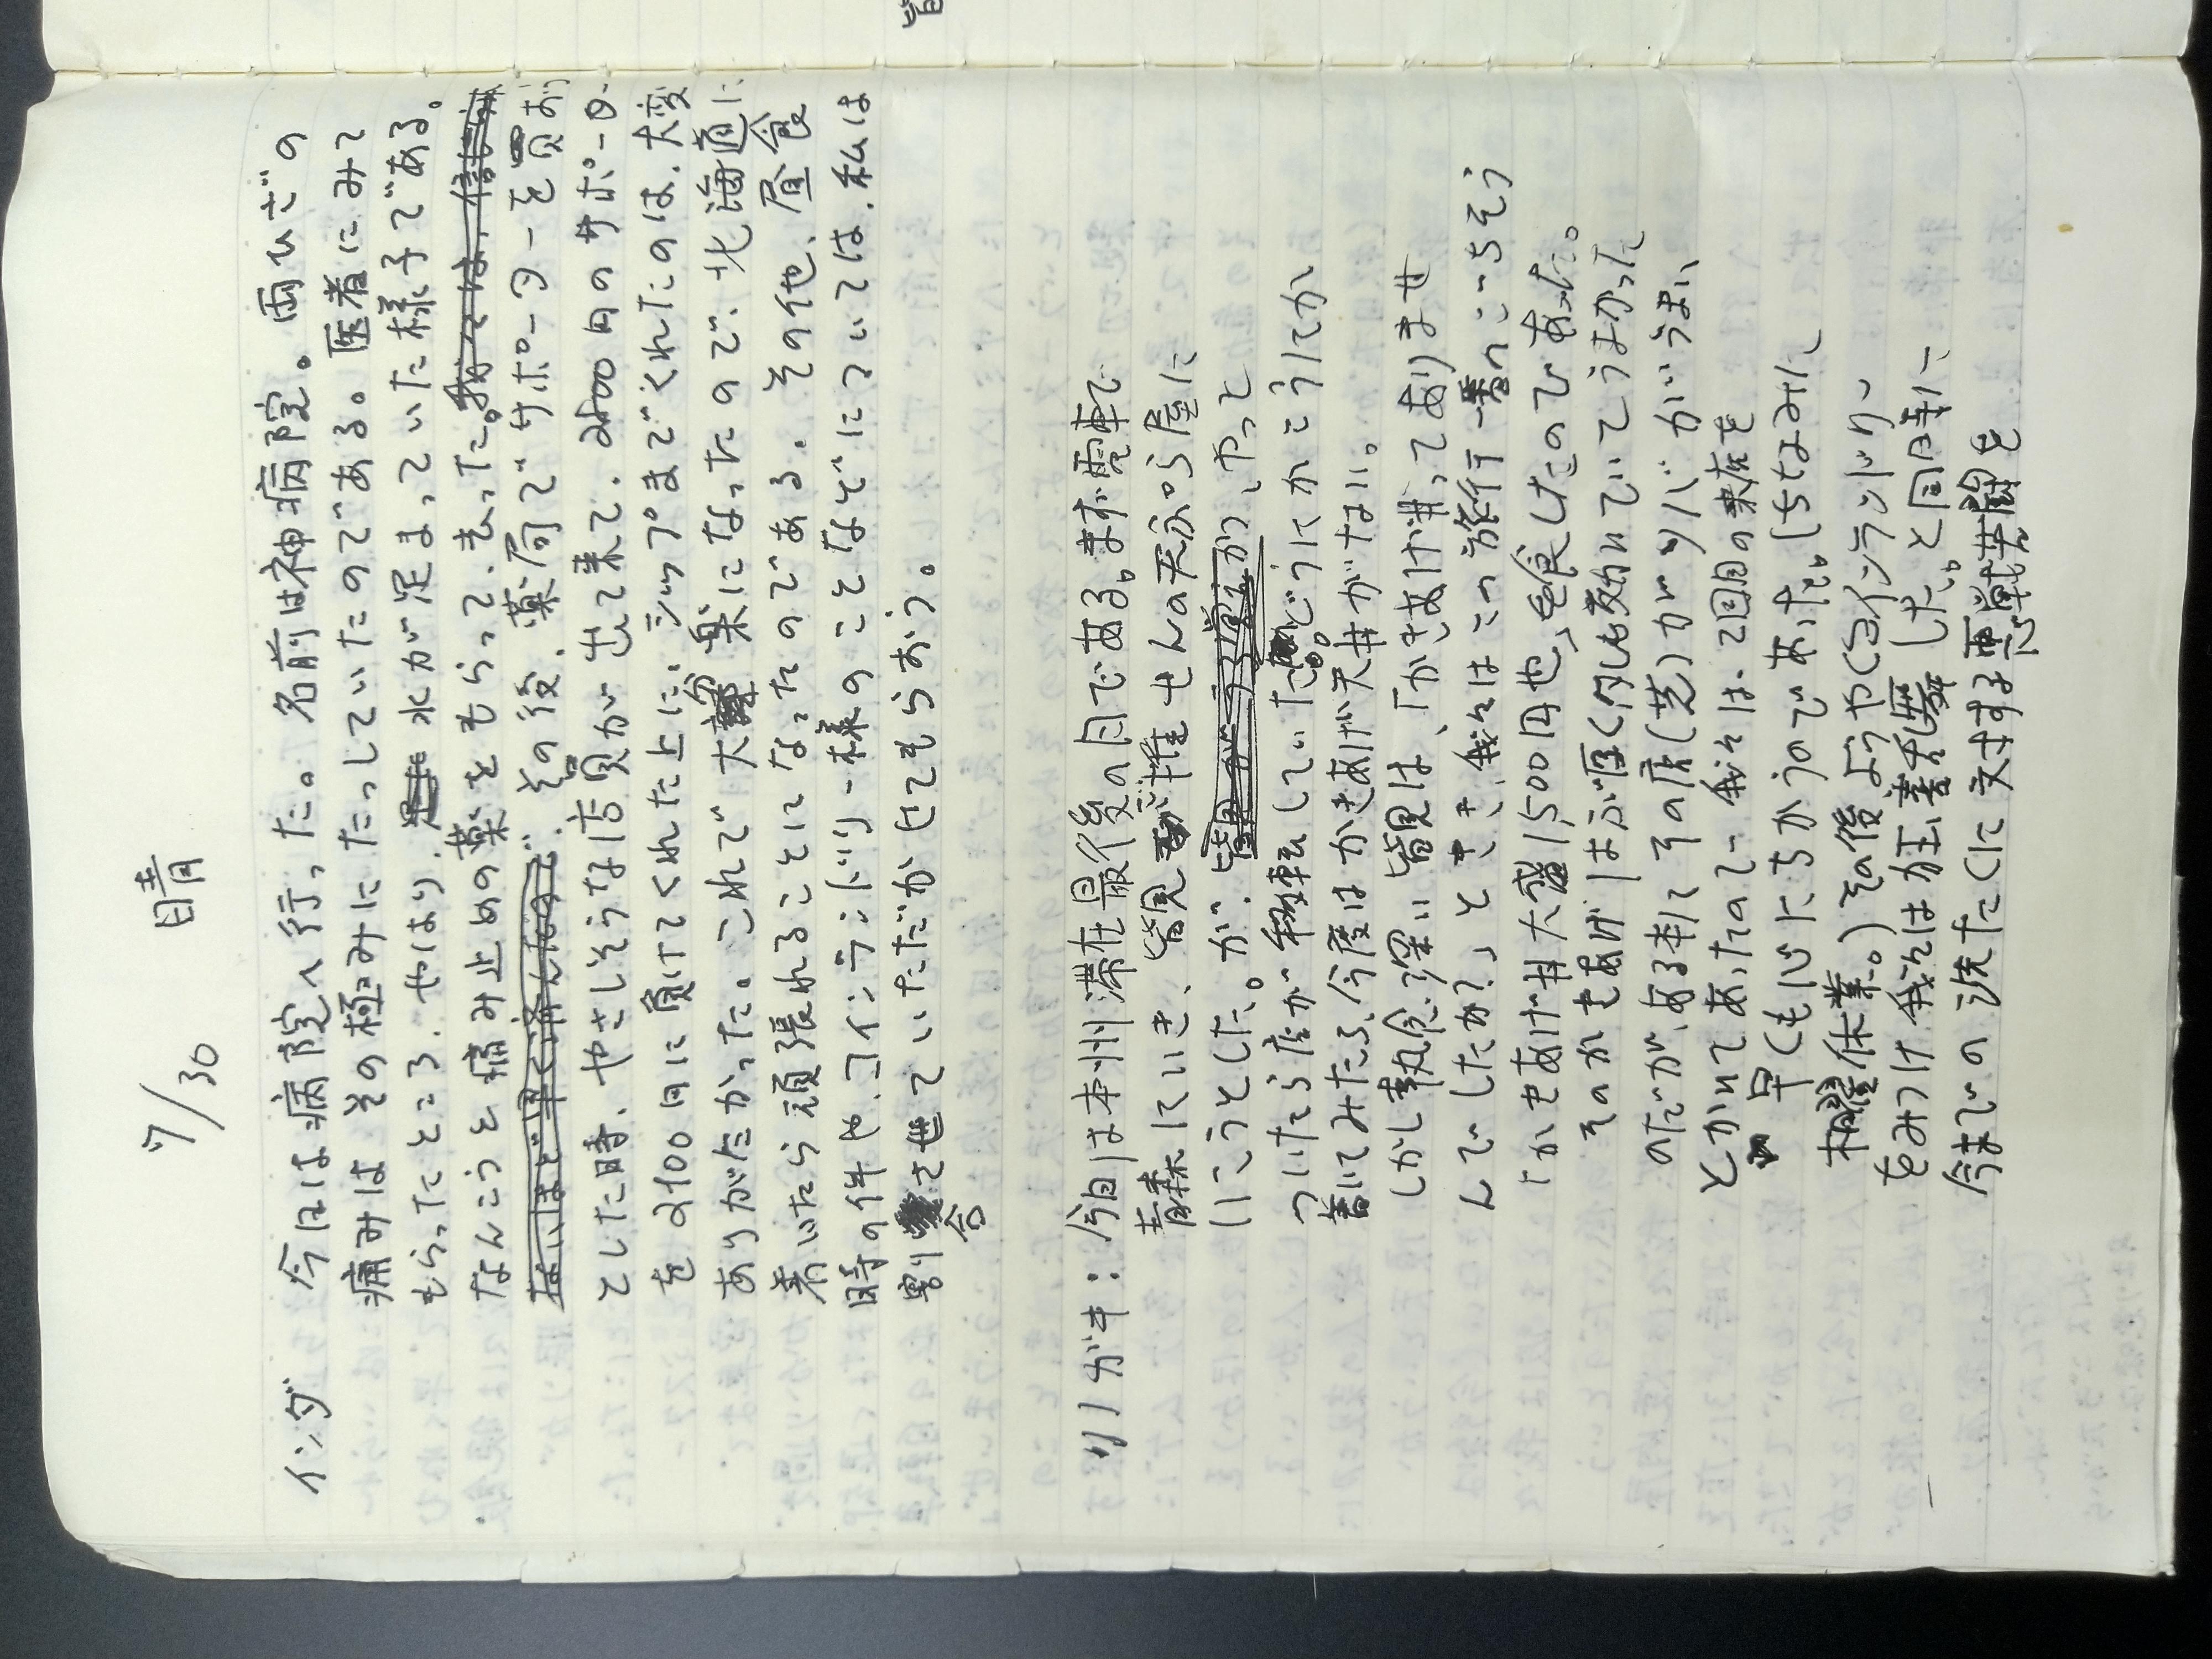 7/30 晴
インダ 今日は病院へ行った。名前は神病院。両ひざの
痛みはその極みにたっしていたのである。医者にみて
もらったところ、やはり、水が足まっていた様子である。
なんこうと痛み止めの薬をもらって、去った。
その後、薬局でサポーターを買お
とした時、やさしそうな店員が出て来て、2500円のサポーター
を2100円に負けてくれた上に、シップまでくれたのは、大変
ありがたかった。これで大分楽になったので、北海道に
着いたら頑張れることになったのである。その他、昼食
時の件や、コインランドリー様のことなどについては、私は
割合させていただかせてもらおう。
ソノガキ：今日は本州滞在最後の日である。まず電車で
青森にいき、皆見が推せんの天ぷら屋に
いこうとした。が、やっと
ついたら店が移転していた。どうにかこうにか
着いてみたら、今度はかきあげ天丼がない。
しかし執念深い皆見は、「かきあげ丼ってありませ
んでしたか?」ときき、我々はこの旅行一番のごちそう
「かきあげ丼大盛1500円也」を食したのであった。
そのかきあげはぶ厚くタレも効いていてうまかった
のだが、ある本にその店(芝)がソバがうまい
とかいてあったので、我々は、2回目の来店を
早くも心にちかうのであった。(ちなみに
木曜休業。)その後ようやくコインランドリー
をみつけ我々は狂喜乱舞した。と同時に
今までの洗たくに対する悪戦苦闘を